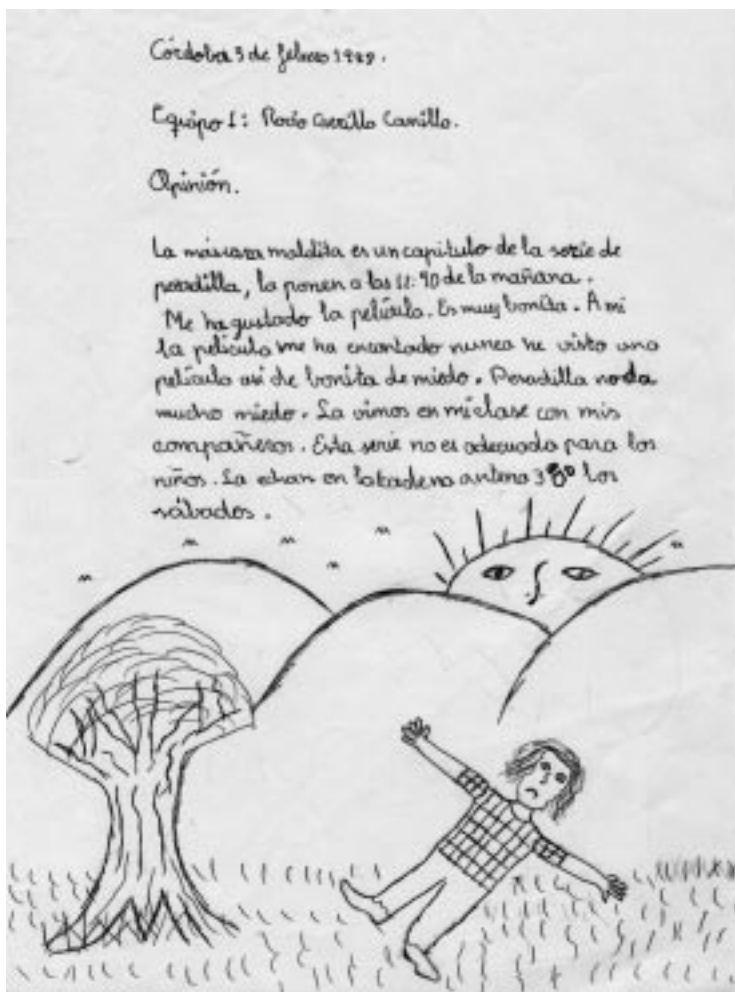 Córdoba 3 de febrero 1998.
Equipo 1: Rocío Carrillo Carrillo.
Opinión.
La máscara maldita es un capitulo de la serie de
pesadilla, la ponen a las 11:90 de la mañana.
Me ha gustado la película. Es muy bonita. A mi
la película me ha encantado nunca he visto una
película así de bonita de miedo. Pesadilla no da
mucho miedo. La vimos en mi clase con mis
compañeros. Esta serie no es adecuada para los
niños. La echan en la kadena antena 3 los
sábados.